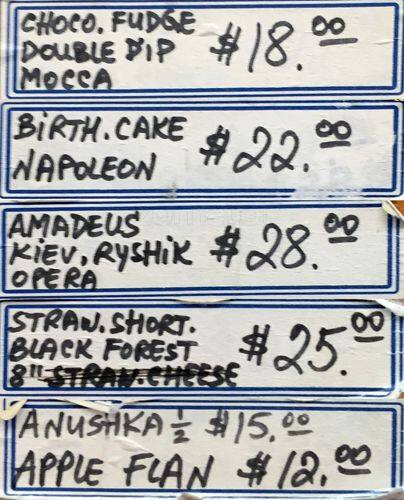 CHOCO. FUDGE
DOUBLE DIP $18.00
MOCCA
BIRTH. CAKE $22.00
NAPOLEON
AMADEUS
KIEV. RYSHIK $28.00
OPERA
STRAW. SHORT.
BLACK FOREST $25.00
8" STRAW. CHEESE
ANUSHKA 1/2 $15.00
APPLE FLAN $12.00